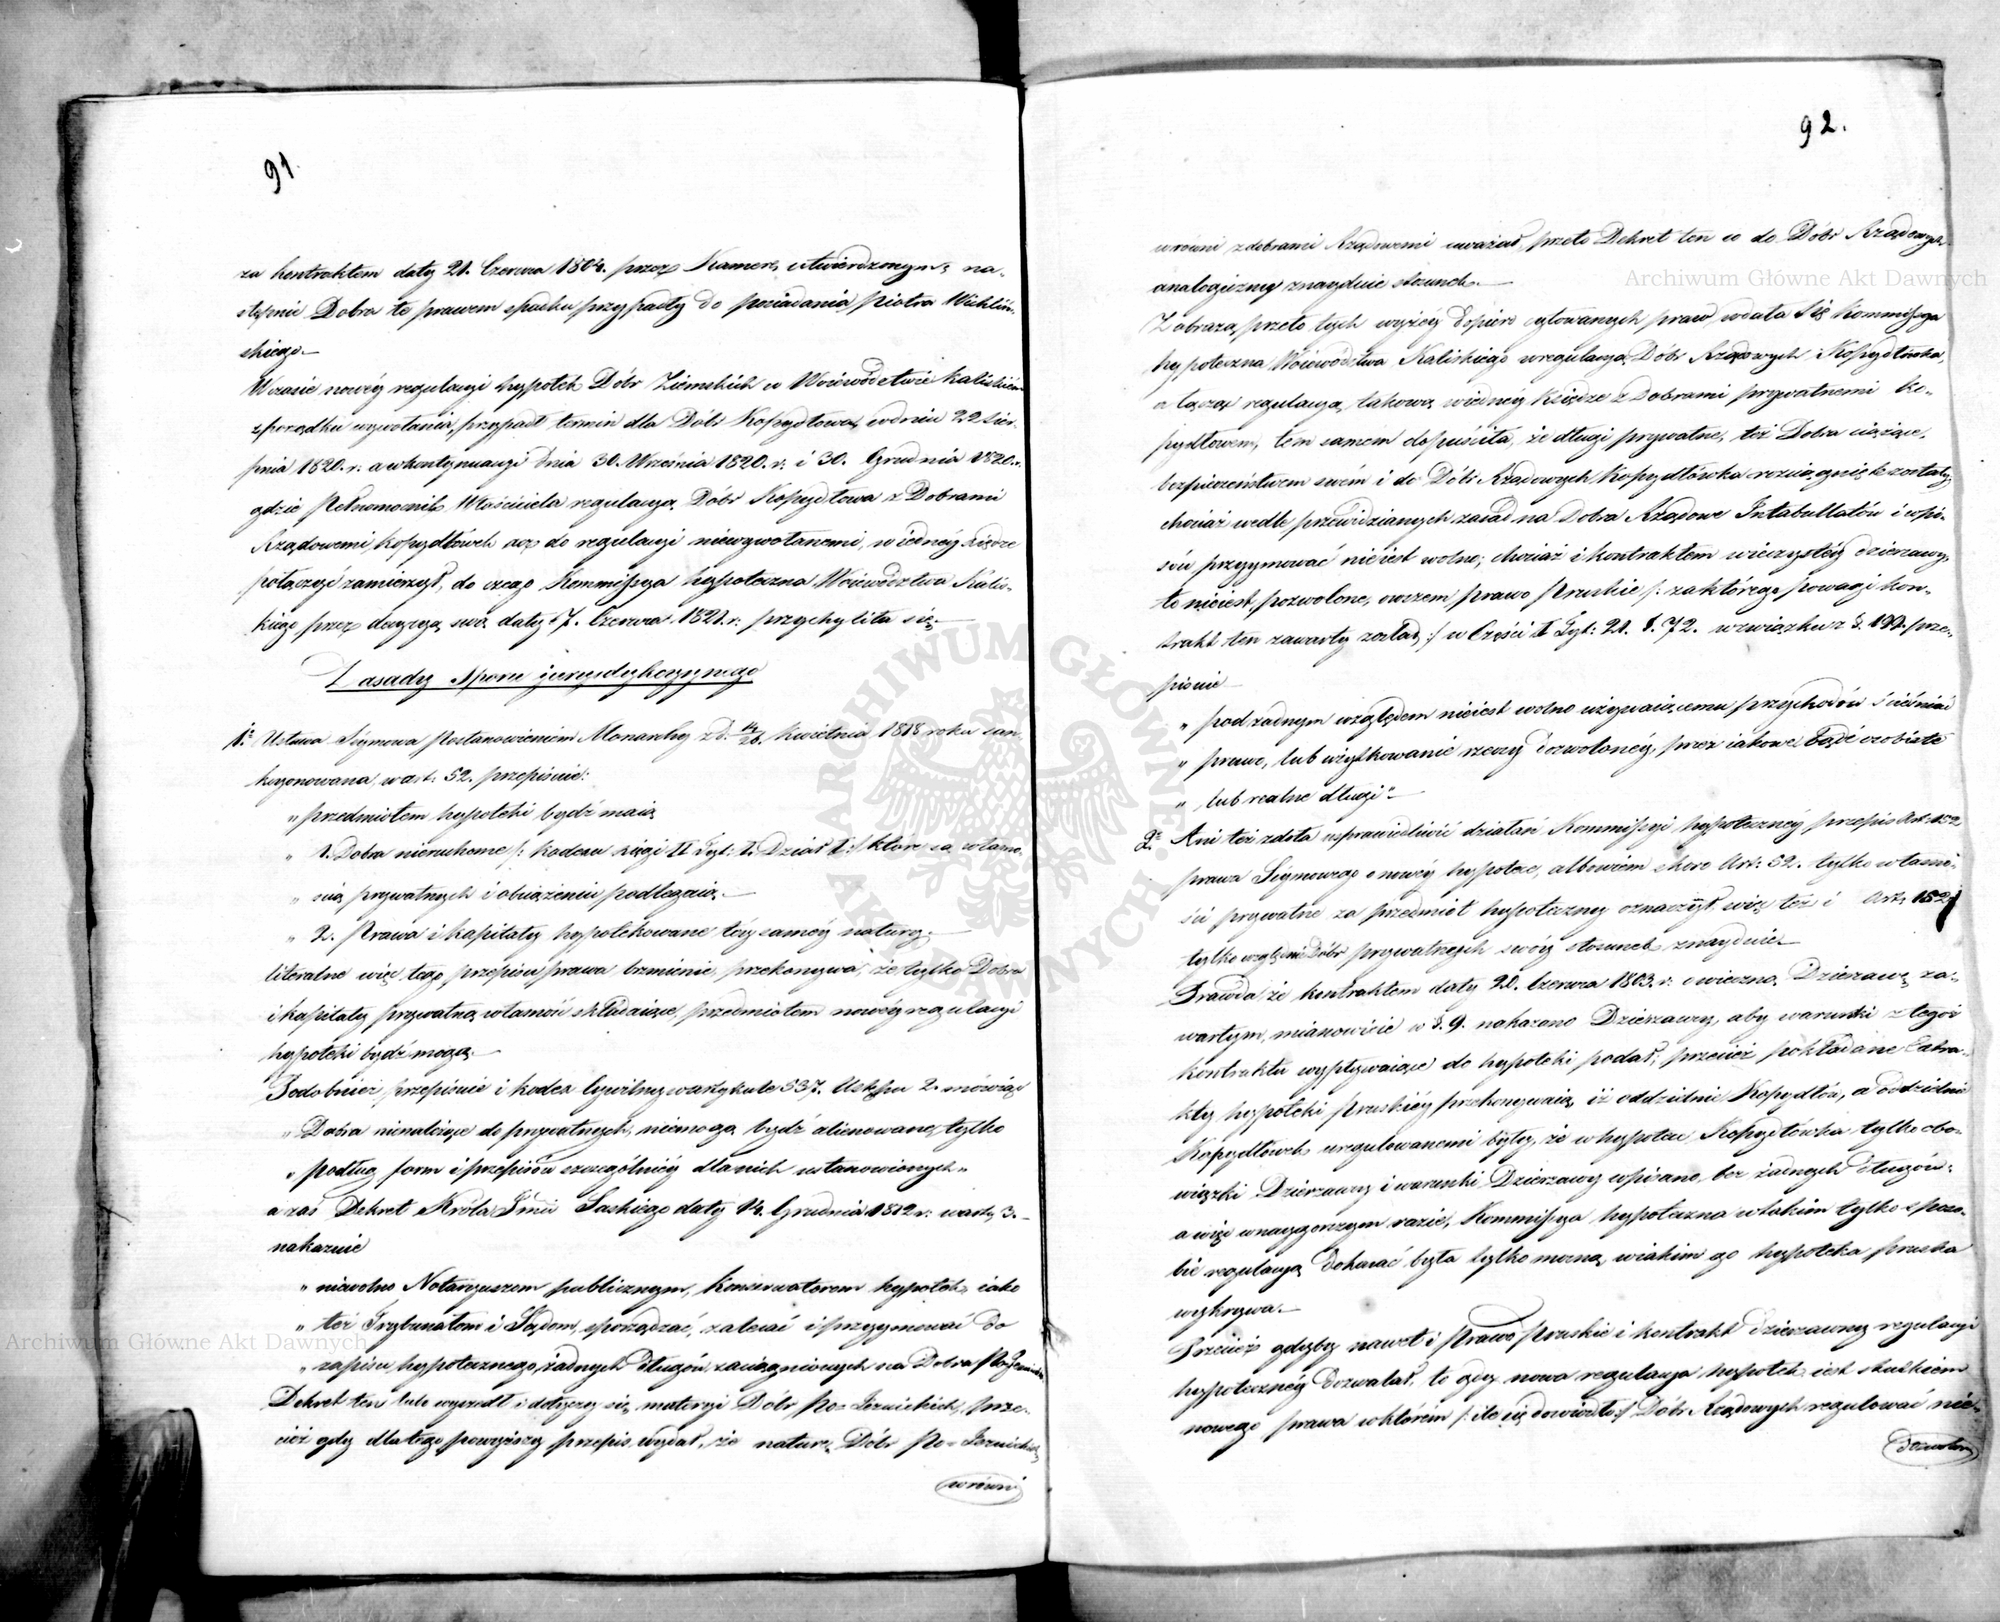 91.
za kontraktem daty 21. Czerwca 1804. przez Kamerę utwierdzonym, na-
stępnie Dobra te prawem spadku przypadły do posiadania Piotra Wichliń-
skiego.
W czasie nowéy regulacyi hypotek Dóbr Ziemskich w Woiewództwie Kaliskiém
z porządku wywołania, przypadł termin dla Dóbr Kopydłowa, w dniu 22 Sier-
pnia 1820. r. a w kontynuacyi dnia 30. Września 1820. r. i 30. Grudnia 1820. r.
gdzie Pełnomocnik Właściciela regulacyą Dóbr Kopydłowa z Dobrami
Rządowemi Kopydłówek acz do regulacyi niewywołanemi, w iedney księdze
połączyć zamierzył, do czego Kommissya hypoteczna Woiewództwa Kalis-
kiego przez decyzyą swą daty 7. Czerwca 1821. r. przychyliła się.
Zasady Sporu jurysdykcyynego
1o Ustawa Seymowa Postanowieniem Monarchy z d. 14/26. kwietnia 1818 roku san-
kcyonowana, w art. 52. przepisuie:
„ przedmiotem hypoteki bydź maią
„ 1. Dobra nieruchome /: kodexu xięgi II Tyt: I. Dział I :/ które są własno-
„ scią prywatnych i obciążeniu podlegaią.
„ 2. Prawa i kapitały hypotekowane téy saméy natury.
literalne więc tego przepisu prawa brzmienie, przekonywa, że tylko Dobra
i kapitały prywatną własność składaiące, przedmiotem nowéy regulacyi
hypoteki bydź mogą.
Podobnież przepisuie i kodex Cywilny w artykule 537. Ustępu 2. mówiąc
„ Dobra nienależące do prywatnych, niemogą bydź alienowane, tylko
„ podług form i przepisów szczególniéy dla nich ustanowionych"
a zaś Dekret Króla Jmci Saskiego daty 14. Grudnia 1812 r. w art. 3.
nakazuie
„ niewolno Notaryuszom publicznym, konserwatorom hypotek, iako
„ też Trybunałom i Sądom, sporządzać, zalecać i przyymować do
„ zapisu hypotecznego, żadnych długów zaciągnionych na Dobra Po-Jezuickie.
Dekret ten lubo wyszedł i dotyczy się materyi Dóbr Po-Jezuickich, prze-
cież gdy dla tego powyższy przepis wydał, że naturę Dóbr Po-Jezuickich
w równi
92.
w równi z dobrami Rządowemi uważał, przeto Dekret ten i do Dóbr Rządowych
analogiczny znayduie stosunek.
Z obrazą przeto tych wyżéy dopiero cytowanych praw, wdała się Kommissya
hypoteczna Woiewództwa Kaliskiego w regulacyą Dóbr Rządowych Kopydłówka,
a łącząc regulacyą takową w iednéy Księdze z Dobrami prywatnemi Ko-
pydłowem, tem samem dopuściła, że długi prywatne, też Dobra ciążące,
bezpieczeństwem swém i do Dóbr Rządowych Kopydłówka rozciągnięte zostały
chociaż wedle przewidzianych zasad na Dobra Rządowe Intabulatów i wpi-
sów przyymować nieiest wolno; chociaż i kontraktem wieczystéy dzierzawy
to nieiest pozwolone, owszem prawo Pruskie /: za którego powagi kon-
trakt ten zawarty został :/ w Części I Tyt: 21. §. 72. w związku z §. 199. prze-
pisuie
„ pod żadnym względem nieiest wolno używaiącemu przychodów ścieśniać
„ prawo, lub użytkowanie rzeczy dozwolonéy, przez iakowe bądź osobiste
„ lub realne długi"
2o Ani też zdoła usprawiedliwić działań Kommissyi hypotecznéy przepis Art: 152
prawa Seymowego o nowéy hypotece, albowiem skoro Art: 52. tylko własno-
ści prywatne za przedmiot hypoteczny oznaczył, więc też i Art: 152
tylko względem Dóbr prywatnych swóy stosunek znayduie.
Prawda że kontraktem daty 20. Czerwca 1803. r. o wieczną Dzierzawę za-
wartym, mianowicie w §. 9. nakazano Dzierzawcy, aby warunki z tegoż
kontraktu wypływaiące do hypoteki podał; przecież pokładane Extra-
kty hypoteki Pruskiéy przekonywaią, iż oddzielnie Kopydłów, a oddzielnie
Kopydłówek uregulowanemi były, że w hypotece Kopydłówka tylko obo-
wiązki Dzierzawcy i warunki Dzierzawy wpisano, bez żadnych długów;
a więc w naygorszym razie, Kommissya hypoteczna w takim tylko sposo-
bie regulacyą dokonać była tylko mocna, w iakim go hypoteka pruska
wykrywa.
Przecież gdyby nawet i Prawo Pruskie i kontrakt dzierzawny regulacyi
hypotecznéy dozwalał, to gdy nowa regulacya hypotek iest skutkiem
nowego prawa w którém /: ile się dowiodło :/ Dóbr Rządowych regulować nie-
dozwolono
Archiwum Główne Akt Dawnych
Archiwum Główne Akt Dawnych
ARCHIWUM GŁÓWNE AKT DAWNYCH